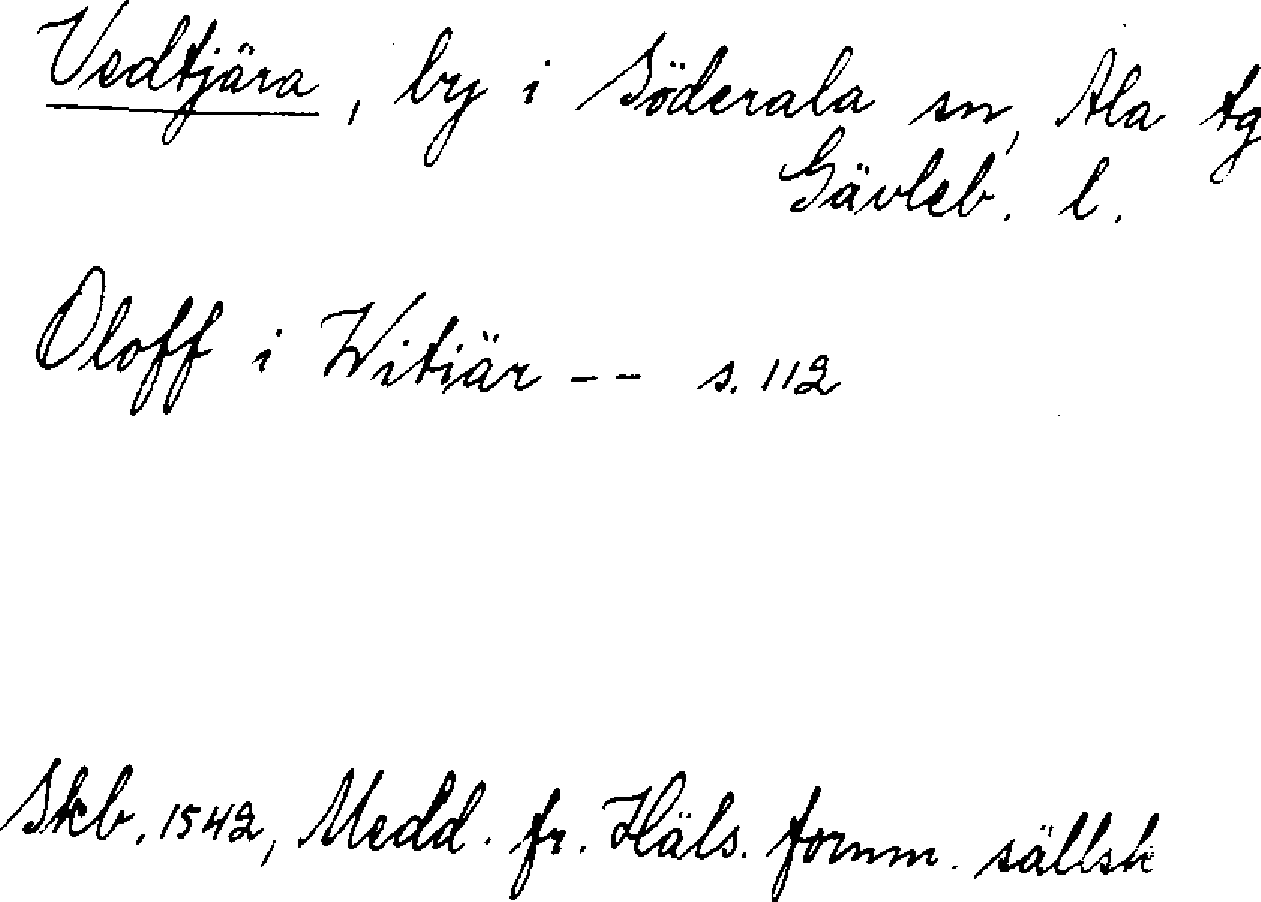 Vedtjära, by i Söderala sn, Ala tg
Gävleb. l.
Oloff i Witiär -- s. 112
Skb. 1542, Medd. fr. Häls. fornm. sällsk